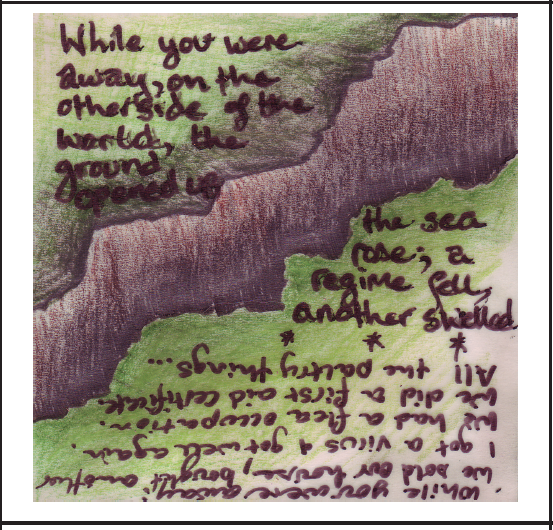 While you were
away, on the
otherside of the
world, the
ground
opened up
the sea
rose; a
regime fell,
another swelled.
* * *
While you were away;
we sold our house, bought another
I got a virus & got well again.
We had a flea occupation.
We did a first aid certificate.
All the paultry things...